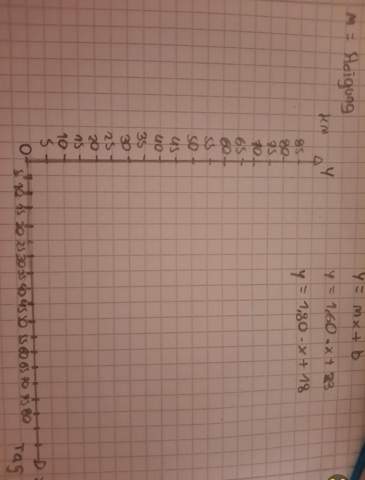 m = Steigung
y = mx + b
y = 1,60 · x + 23
y = 1,80 · x + 18
km
y
85
80
75
70
65
60
55
50
45
40
35
30
25
20
15
10
5
0
5 10 15 20 25 30 35 40 45 50 55 60 65 70 75 80
Tag